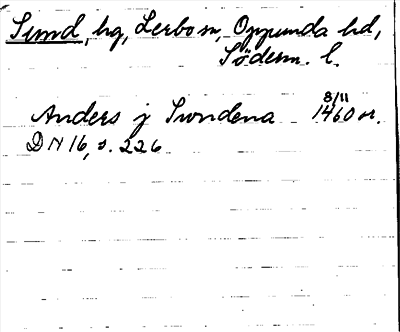 Simd, hg, Lerbo sn, Oppunda hd,
Söderm. l.
8/11
Anders j Swndena 1460 or.
DN 16, s. 226